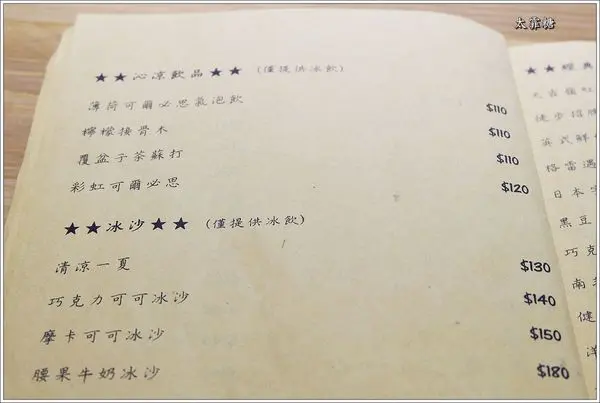 太菲糖
★★沁涼飲品★★ (僅提供冰飲)
薄荷可爾必思氣泡飲 $110
檸檬接骨木 $110
覆盆子荼蘇打 $110
彩虹可爾必思 $120
★★冰沙★★ (僅提供冰飲)
清涼一夏 $130
巧克力可可冰沙 $140
摩卡可可冰沙 $150
腰果牛奶冰沙 $180
★★經典
格雷遇
日本
黑豆
巧克
南
健
洋